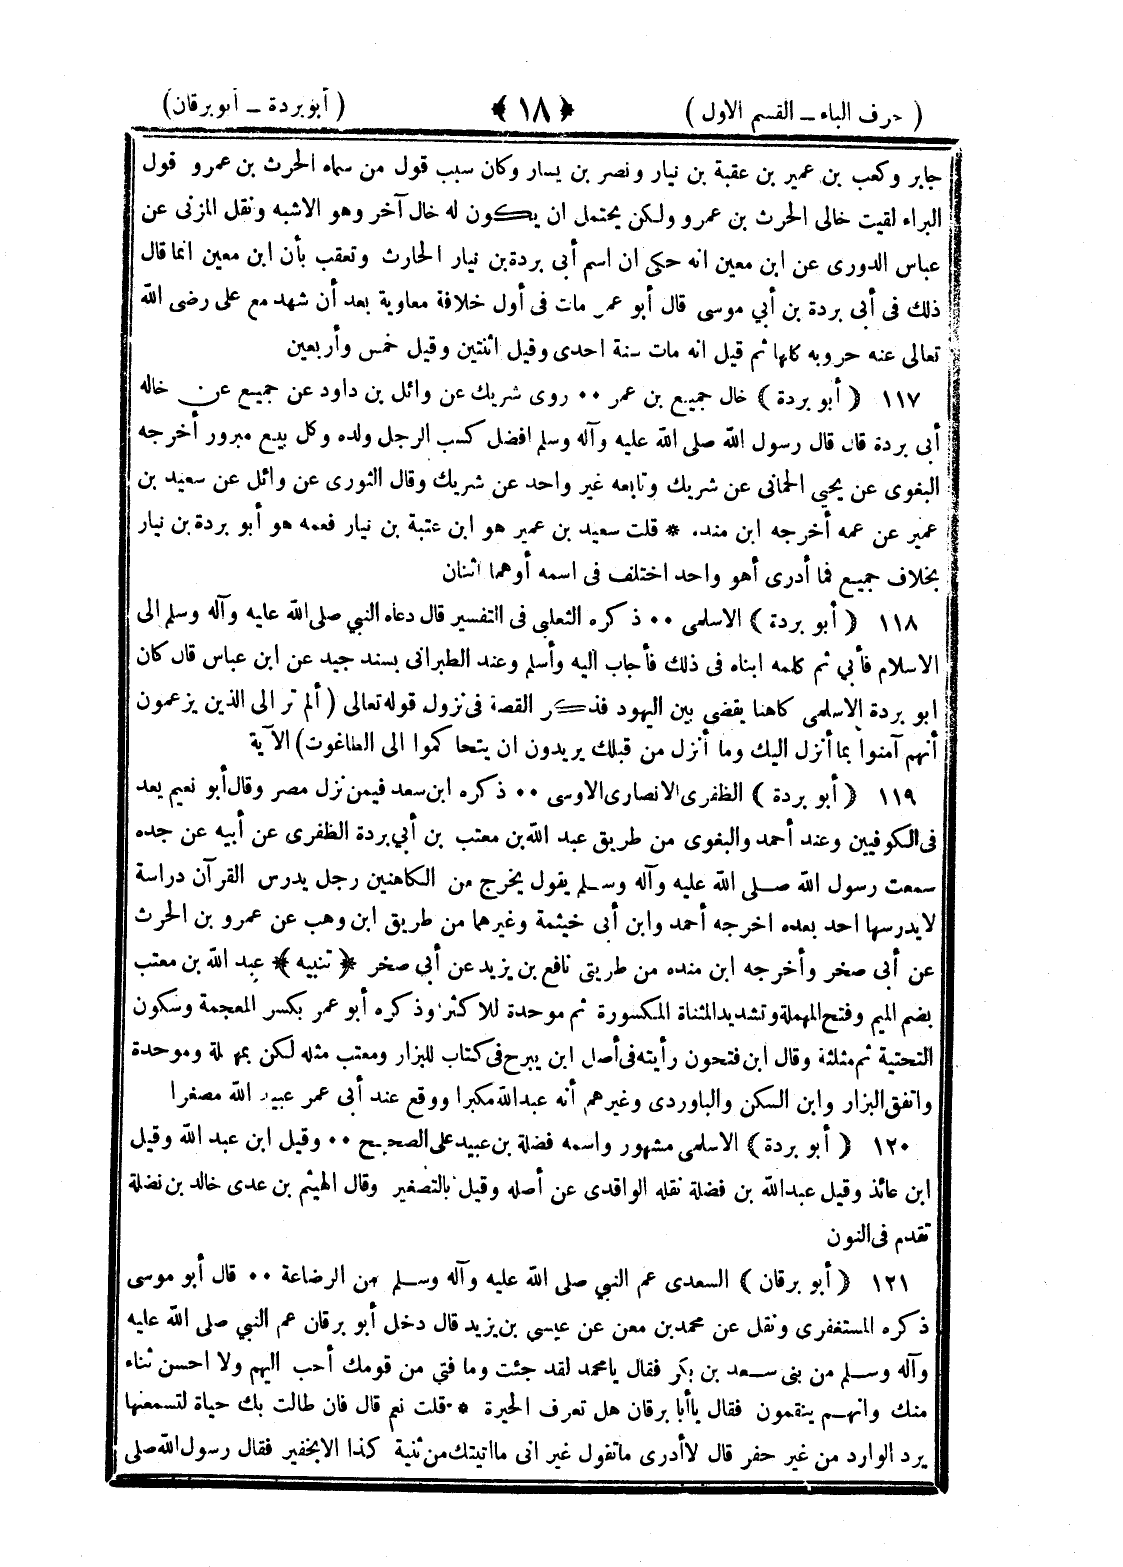 ( حرف الباء ــ القسم الاول )
﴿ ١٨ ﴾
( أبوبردة ــ أبوبرقان )
جابر وكعب بن عمير بن عقبة بن نيار ونصر بن يسار وكان سبب قول من سماه الحرث بن عمرو قول
البراء لقيت خالى الحرث بن عمرو ولكن يحتمل ان يكون له خال آخر وهو الاشبه ونقل المزنى عن
عباس الدورى عن ابن معين انه حكى ان اسم أبى بردة بن نيار الحارث وتعقب بأن ابن معين انما قال
ذلك فى أبى بردة بن أبي موسى قال أبو عمر مات فى أول خلافة معاوية بعد أن شهد مع على رضى الله
تعالى عنه حروبه كلها ثم قيل انه مات سنة احدى وقيل اثنتين وقيل خمس وأربعين
١١٧ ( أبو بردة ) خال جميع بن عمر ٠٠ روى شريك عن وائل بن داود عن جميع عن خاله
أبى بردة قال قال رسول الله صلى الله عليه وآله وسلم افضل كسب الرجل ولده وكل بيع مبرور أخرجه
البغوى عن يحيي الحمانى عن شريك وتابعه غير واحد عن شريك وقال الثورى عن وائل عن سعيد بن
عمير عن عمه أخرجه ابن منده * قلت سعيد بن عمير هو ابن عتبة بن نيار فعمه هو أبو بردة بن نيار
بخلاف جميع فما أدرى أهو واحد اختلف فى اسمه أوهما اثنان
١١٨ ( أبو بردة ) الاسلمى ٠٠ ذكره الثعلبى فى التفسير قال دعاه النبي صلى الله عليه وآله وسلم الى
الاسلام فأبي ثم كلمه ابناه فى ذلك فأجاب اليه وأسلم وعند الطبرانى بسند جيد عن ابن عباس قال كان
ابو بردة الاسلمى كاهنا يقضى بين اليهود فذكر القصة فى نزول قوله تعالى ( ألم تر الى الذين يزعمون
أنهم آمنوا بما أنزل اليك وما أنزل من قبلك يريدون ان يتحاكموا الى الطاغوت) الآية
١١٩ ( أبو بردة ) الظفرى الانصارى الاوسى ٠٠ ذكره ابن سعد فيمن نزل مصر وقال أبو نعيم يعد
فى الكوفيين وعند أحمد والبغوى من طريق عبد الله بن معتب بن أبي بردة الظفرى عن أبيه عن جده
سمعت رسول الله صلى الله عليه وآله وسلم يقول يخرج من الكاهنين رجل يدرس القرآن دراسة
لا يدرسها احد بعده اخرجه أحمد وابن أبى خيثمة وغيرهما من طريق ابن وهب عن عمرو بن الحرث
عن أبى صخر وأخرجه ابن منده من طريق نافع بن يزيد عن أبي صخر * ( تنبيه ) * عبد الله بن معتب
بضم الميم وفتح المهملة وتشديد المثناة المكسورة ثم موحدة للاكثر وذكره أبو عمر بكسر المعجمة وسكون
التحتية ثم مثلثة وقال ابن فتحون رأيته فى أصل ابن يبرح فى كتاب للبزار ومعتب مثله لكن بمهملة وموحدة
واتفق البزار وابن السكن والباوردى وغيرهم أنه عبد الله مكبرا ووقع عند أبى عمر عبيد الله مصغرا
١٢٠ ( أبو بردة ) الاسلمى مشهور واسمه فضلة بن عبيد على الصحيح ٠٠ وقيل ابن عبد الله وقيل
ابن عائذ وقيل عبد الله بن فضلة نقله الواقدى عن أصله وقيل بالتصغير وقال الهيثم بن عدى خالد بن نضلة
تقدم فى النون
١٢١ ( أبو برقان ) السعدى عم النبي صلى الله عليه وآله وسلم من الرضاعة ٠٠ قال أبو موسى
ذكره المستغفرى ونقل عن محمد بن معن عن عيسي بن يزيد قال دخل أبو برقان عم النبي صلى الله عليه
وآله وسلم من بنى سعد بن بكر فقال يامحمد لقد جئت وما فتي من قومك أحب اليهم ولا احسن ثناء
منك وانهم ينقمون فقال ياأبا برقان هل تعرف الحيرة * قلت نعم قال فان طالت بك حياة لتسمعنها
يرد الوارد من غير حفر قال لاأدرى ماتقول غير انى مااتيتك من ثنية كذا الابخفير فقال رسول الله صلى